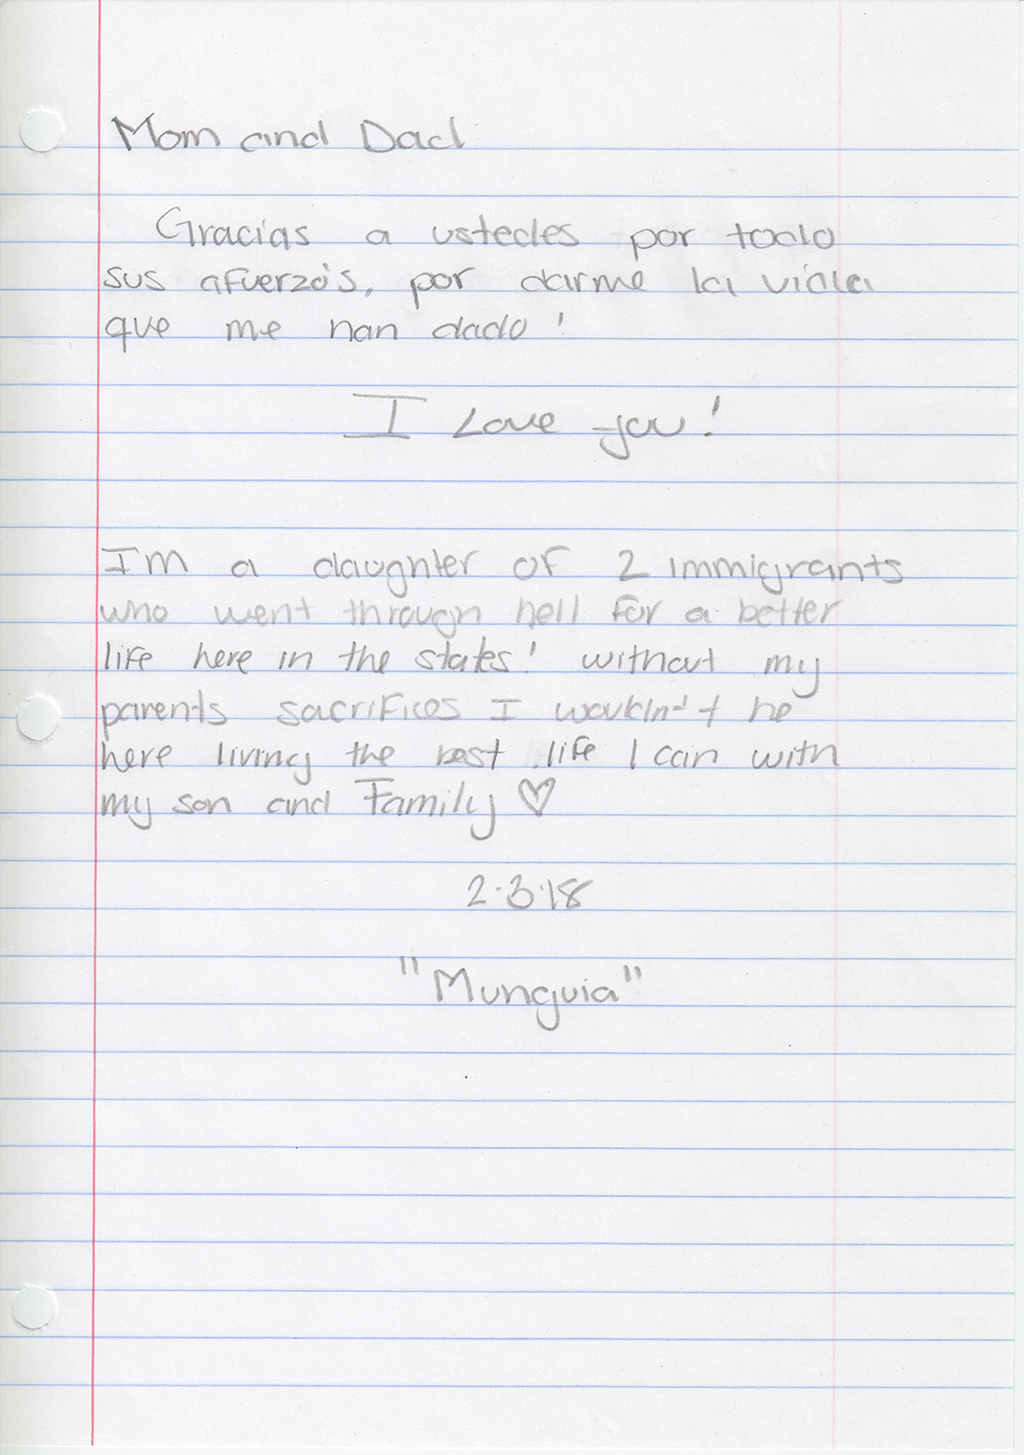 Mom and Dad
Gracias a ustedes por todo
sus afuerzos, por darme la vida
que me han dado!
I Love you!
I'm a daughter of 2 immigrants
who went through hell for a better
life here in the states! without my
parents sacrifices I wouldn't be
here living the best life I can with
my son and Family ♡
2.3.18
"Munguia"